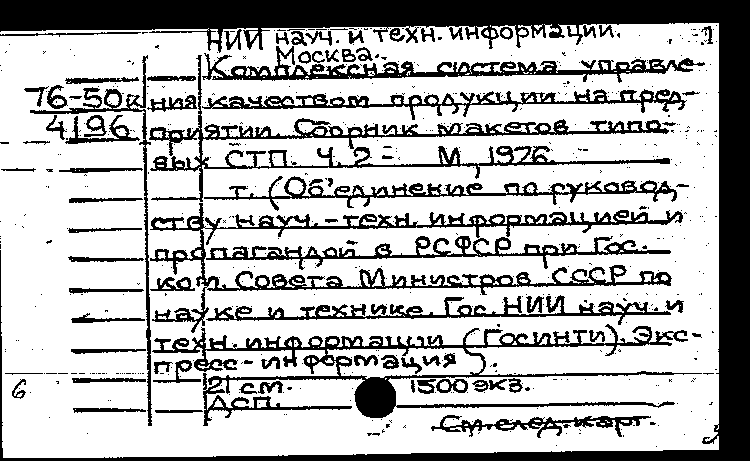 НИИ науч. и техн. информации. 1
Москва.
Комплексная система управле-
76-50к ния качеством продукции на пред-
4196 приятии. Сборник макетов типо-
вых СТП. Ч. 2- М, 1976.
т. (Об'единение по руковод-
ству науч.-техн. информацией и
пропагандой в РСФСР при Гос.
ком. Совета Министров СССР по
науке и технике. Гос. НИИ науч. и
техн. информации (Госинти). Экс-
пресс-информация).
6 21 см. 1500 экз.
Дсп.
См. след. карт.